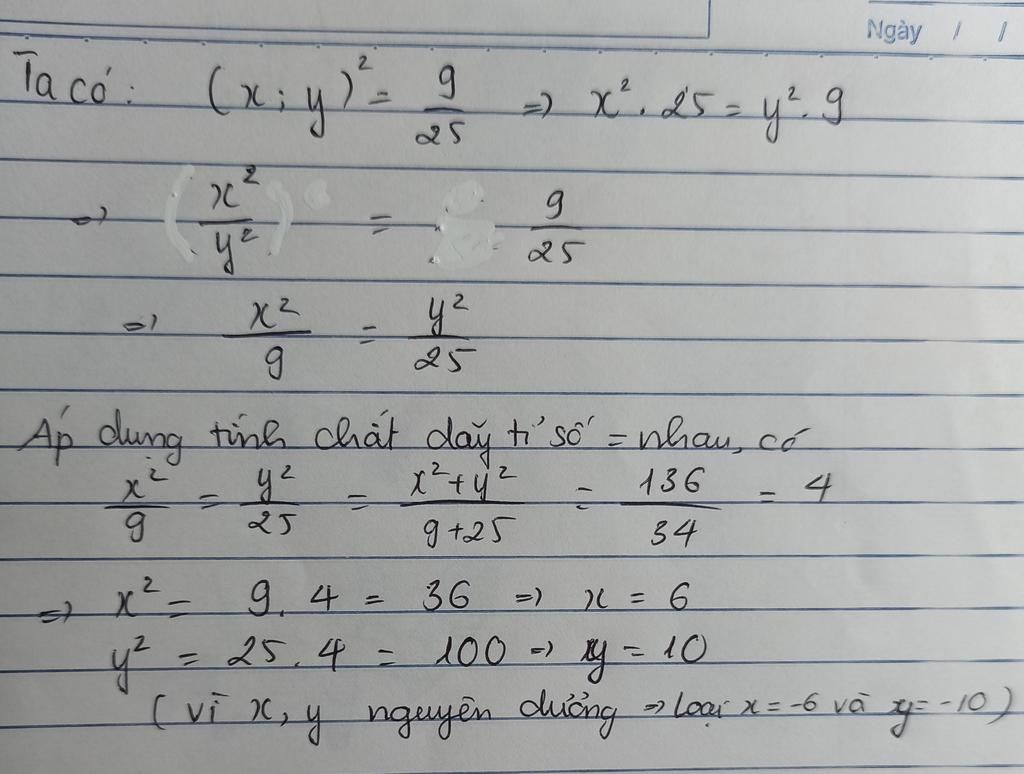 Ngày / /
Ta có: (x ; y)² = 9/25 => x² . 25 = y² . 9
=> (x²/y²) = 9/25
=> x²/9 = y²/25
Áp dụng tính chất dãy tỉ số = nhau, có
x²/9 = y²/25 = x²+y²/9+25 = 136/34 = 4
=> x² = 9. 4 = 36 => x = 6
y² = 25. 4 = 100 => y = 10
(vì x, y nguyên dưỡng => loại x = -6 và y = -10)